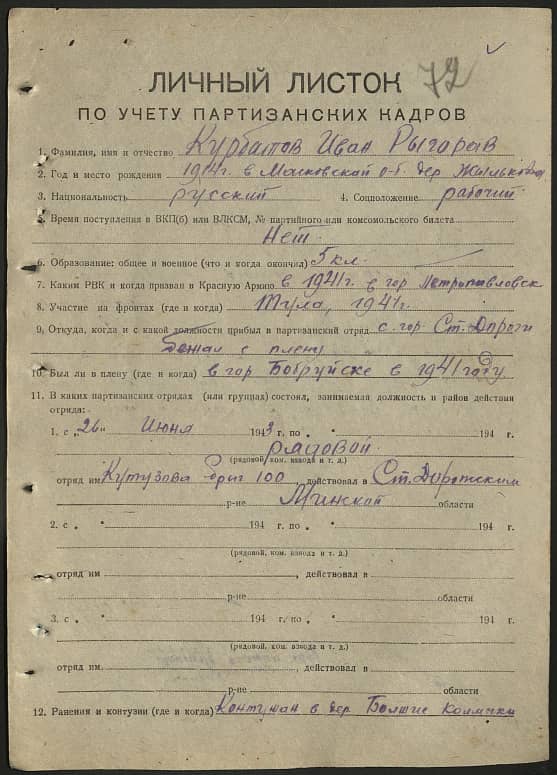 72
ЛИЧНЫЙ ЛИСТОК
ПО УЧЕТУ ПАРТИЗАНСКИХ КАДРОВ
1. Фамилия, имя и отчество Курбатов Иван
2. Год и место рождения 1914г. в Московской о-б. дер
3. Национальность русский 4. Соцположение рабочий
5. Время поступления в ВКП(б) или ВЛКСМ, № партийного или комсомольского билета
Нет.
6. Образование: общее и военное (что и когда окончил) 5 кл.
7. Каким РВК и когда призван в Красную Армию в 1941г. в гор Петропавловск
8. Участие на фронтах (где и когда) Тула, 1941г.
9. Откуда, когда и с какой должности прибыл в партизанский отряд с гор. Ст. Дороги
Бежал с плену
10. Был ли в плену (где и когда) в гор Бобруйске в 1941 году
11. В каких партизанских отрядах (или группах) состоял, занимаемая должность и район действия
отряда:
1. с „26" Июня 1943 г. по „ " 194 г.
рядовой.
(рядовой, ком. взвода и т. д.)
отряд им Кутузова бриг 100 действовал в Ст. Дорожским
р-не Минской области
2. с „ " 194 г. по „ " 194 г.
(рядовой, ком. взвода и т. д.)
отряд им , действовал в
р-не области
3. с „ " 194 г. по „ " 194 г.
(рядовой, ком. взвода и т. д.)
отряд им , действовал в
р-не области
12. Ранения и контузии (где и когда) Контужен в дер